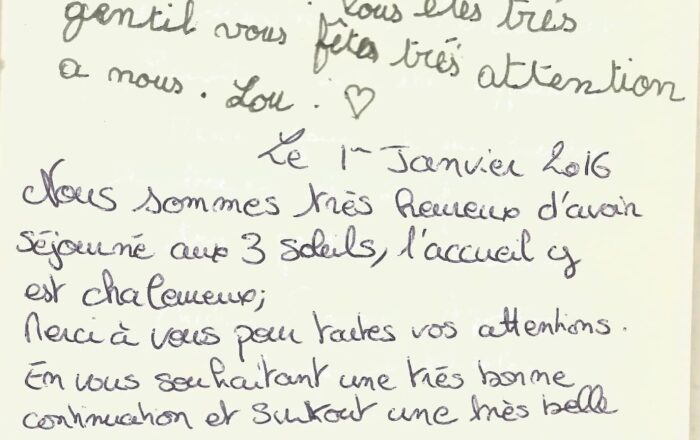 gentil vous êtes très
vous fêtes trés attention
a nous. Lou. ♡
Le 1er Janvier 2016
Nous sommes très heureux d'avoir
séjourné aux 3 soleils, l'accueil y
est chaleureux;
Merci à vous pour toutes vos attentions.
En vous souhaitant une très bonne
continuation et surtout une très belle